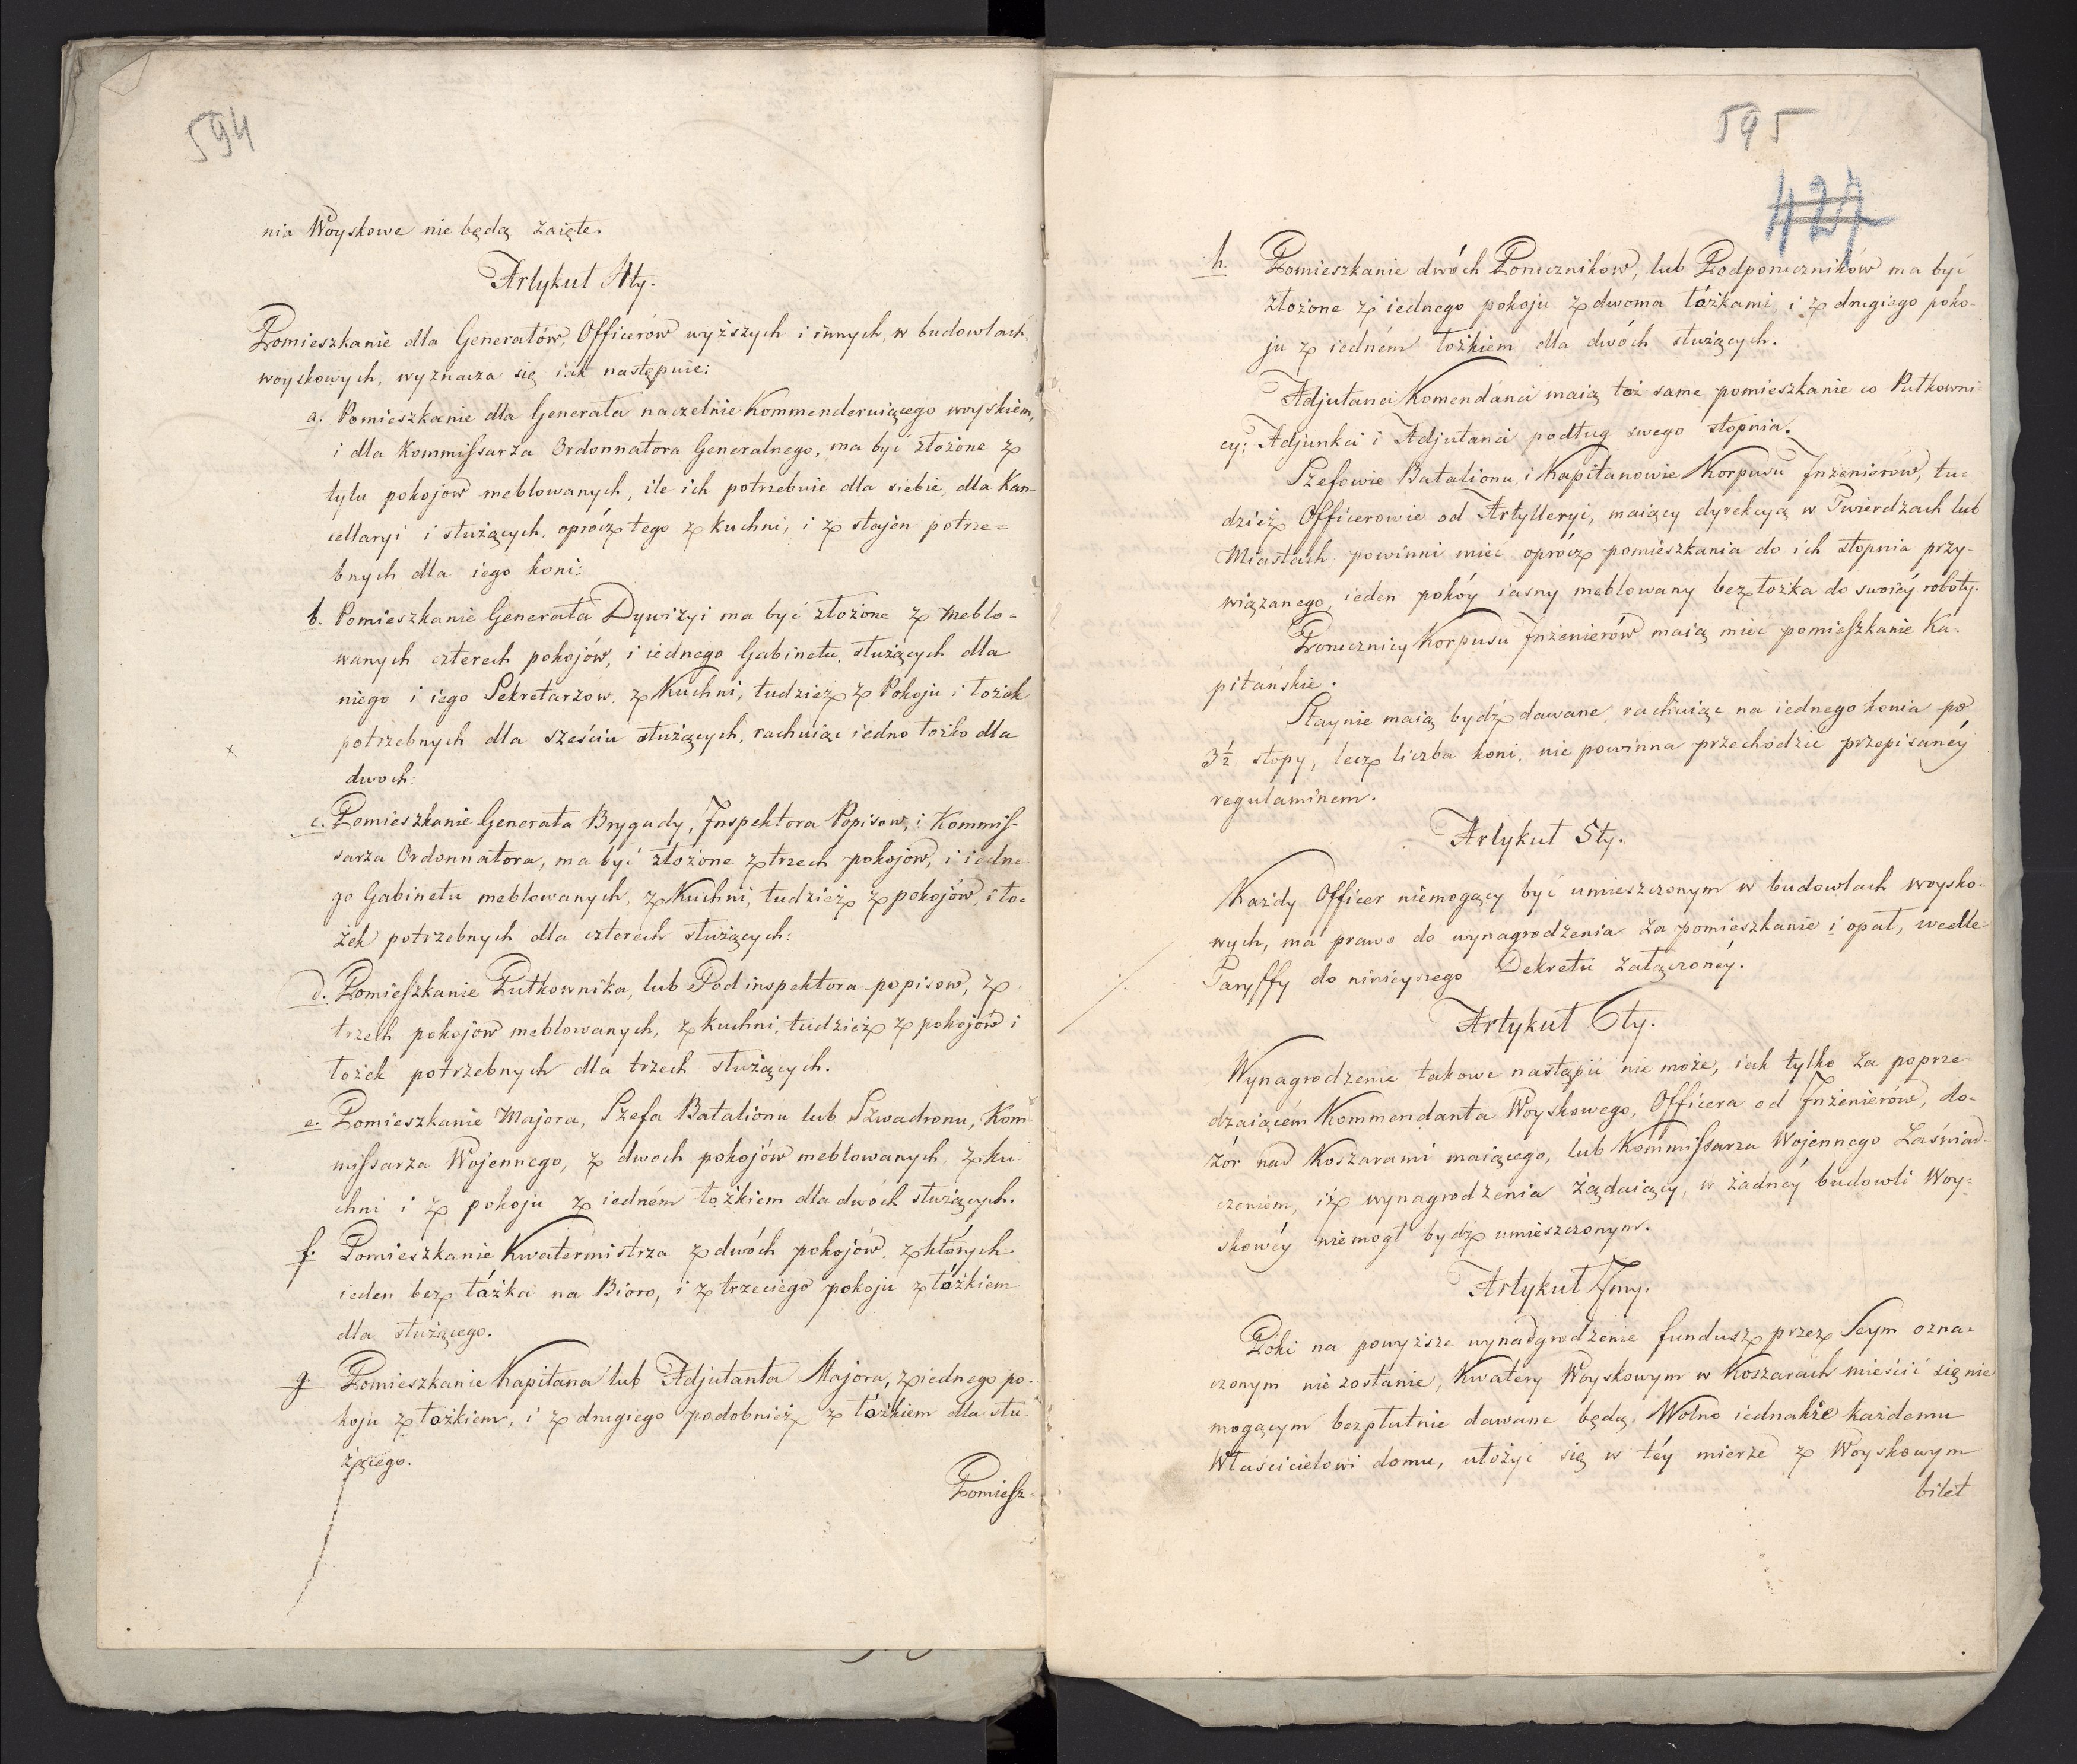 594
nia Woyskowe nie będą zaięte.
Artykuł 4ty.
Pomieszkanie dla Generałów, Officerów wyższych i innych, w budowlach
woyskowych, wyznacza się iak następuie:
a. Pomieszkanie dla Generała naczelnie Kommenderuiącego woyskiem,
i dla Kommissarza Ordonnatora Generalnego, ma być złożone z
tylu pokojów meblowanych, ile ich potrzebuie dla siebie, dla Kan-
cellaryi i służących, oprócz tego z kuchni, i z stajen potrze=
bnych dla iego koni:
b. Pomieszkanie Generała Dywizyi ma być złożone z meblo=
wanych czterech pokojów, i iednego Gabinetu, służących dla
niego i iego Sekretarzow, z Kuchni, tudzież z Pokoju i łożek
potrzebnych dla sześciu służących, rachuiąc iedno łożko dla
dwoch:
c. Pomieszkanie Generała Brygady, Inspektora Popisow, i Kommis-
sarza Ordonnatora, ma być złożone z trzech pokojów, i iedne-
go Gabinetu meblowanych, z Kuchni, tudzież z pokojów, i ło-
żek potrzebnych dla czterech służących:
d. Pomieszkanie Pułkownika, lub Podinspektora popisow, z
trzech pokojów meblowanych, z kuchni, tudzież z pokojów i
łożek potrzebnych dla trzech służących.
e. Pomieszkanie Majora, Szefa Batalionu lub Szwadronu, Kom-
missarza Wojennego, z dwoch pokojów meblowanych, z ku-
chni i z pokoju z iedném łożkiem dla dwóch służących.
f. Pomieszkanie Kwatermistrza z dwóch pokojów, z których
ieden bez łóżka na Bioro, i z trzeciego pokoju z łóżkiem
dla służącego.
g. Pomieszkanie Kapitana lub Adjutanta Majora, z iednego po-
koju z łożkiem, i z drugiego podobnież z łóżkiem dla słu-
żącego.
Pomiesz
595
427
h. Pomieszkanie dwóch Poruczników, lub Podporuczników ma być
złożone z iednego pokoju z dwoma łóżkami, i z drugiego poko-
ju z iedném łożkiem dla dwóch służących.
Adjutanci Komendanci maią toż same pomieszkanie co Pułkowni-
cy; Adjunkci i Adjutanci podług swego stopnia.
Szefowie Batalionu, i Kapitanowie Korpusu Inżenierów, tu=
dzież Officerowie od Artylleryi, maiący dyrekcyą w Twierdzach lub
Miastach, powinni mieć oprócz pomieszkania do ich stopnia przy-
wiązanego, ieden pokóy iasny meblowany bez łożka do swoiéy roboty.
Porucznicy Korpusu Inżenierów maią mieć pomieszkanie Ka-
pitańskie.
Staynie maią bydź dawane, rachuiąc na iednego konia po
3½ stopy, lecz liczba koni, nie powinna przechodzić przepisanéy
regulaminem.
Artykuł 5ty.
Każdy Officer niemogący być umieszczonym w budowlach woysko-
wych, ma prawo do wynagrodzenia za pomieszkanie i opał, wedle
Taryffy do ninieyszego Dekretu załączonéy.
Artykuł 6ty.
Wynagrodzenie takowe nastąpić nie może, iak tylko za poprze-
dzaiącém Kommendanta Woyskowego, Officera od Inżenierów, do-
zór nad Koszarami maiącego, lub Kommissarza Wojennego zaświad-
czeniem, iż wynagrodzenia żądaiący, w żadnéy budowli Woy=
skowéy niemogł bydź umieszczonym.
Artykuł 7my.
Póki na powyższe wynadgrodzenie fundusz przez Seym ozna=
czonym nie zostanie, Kwatery Woyskowym w Koszarach mieścić się nie
mogącym bezpłatnie dawane będą. Wolno iednakże każdemu
Właścicielowi domu, ułożyć się w téy mierze z Woyskowym
bilet